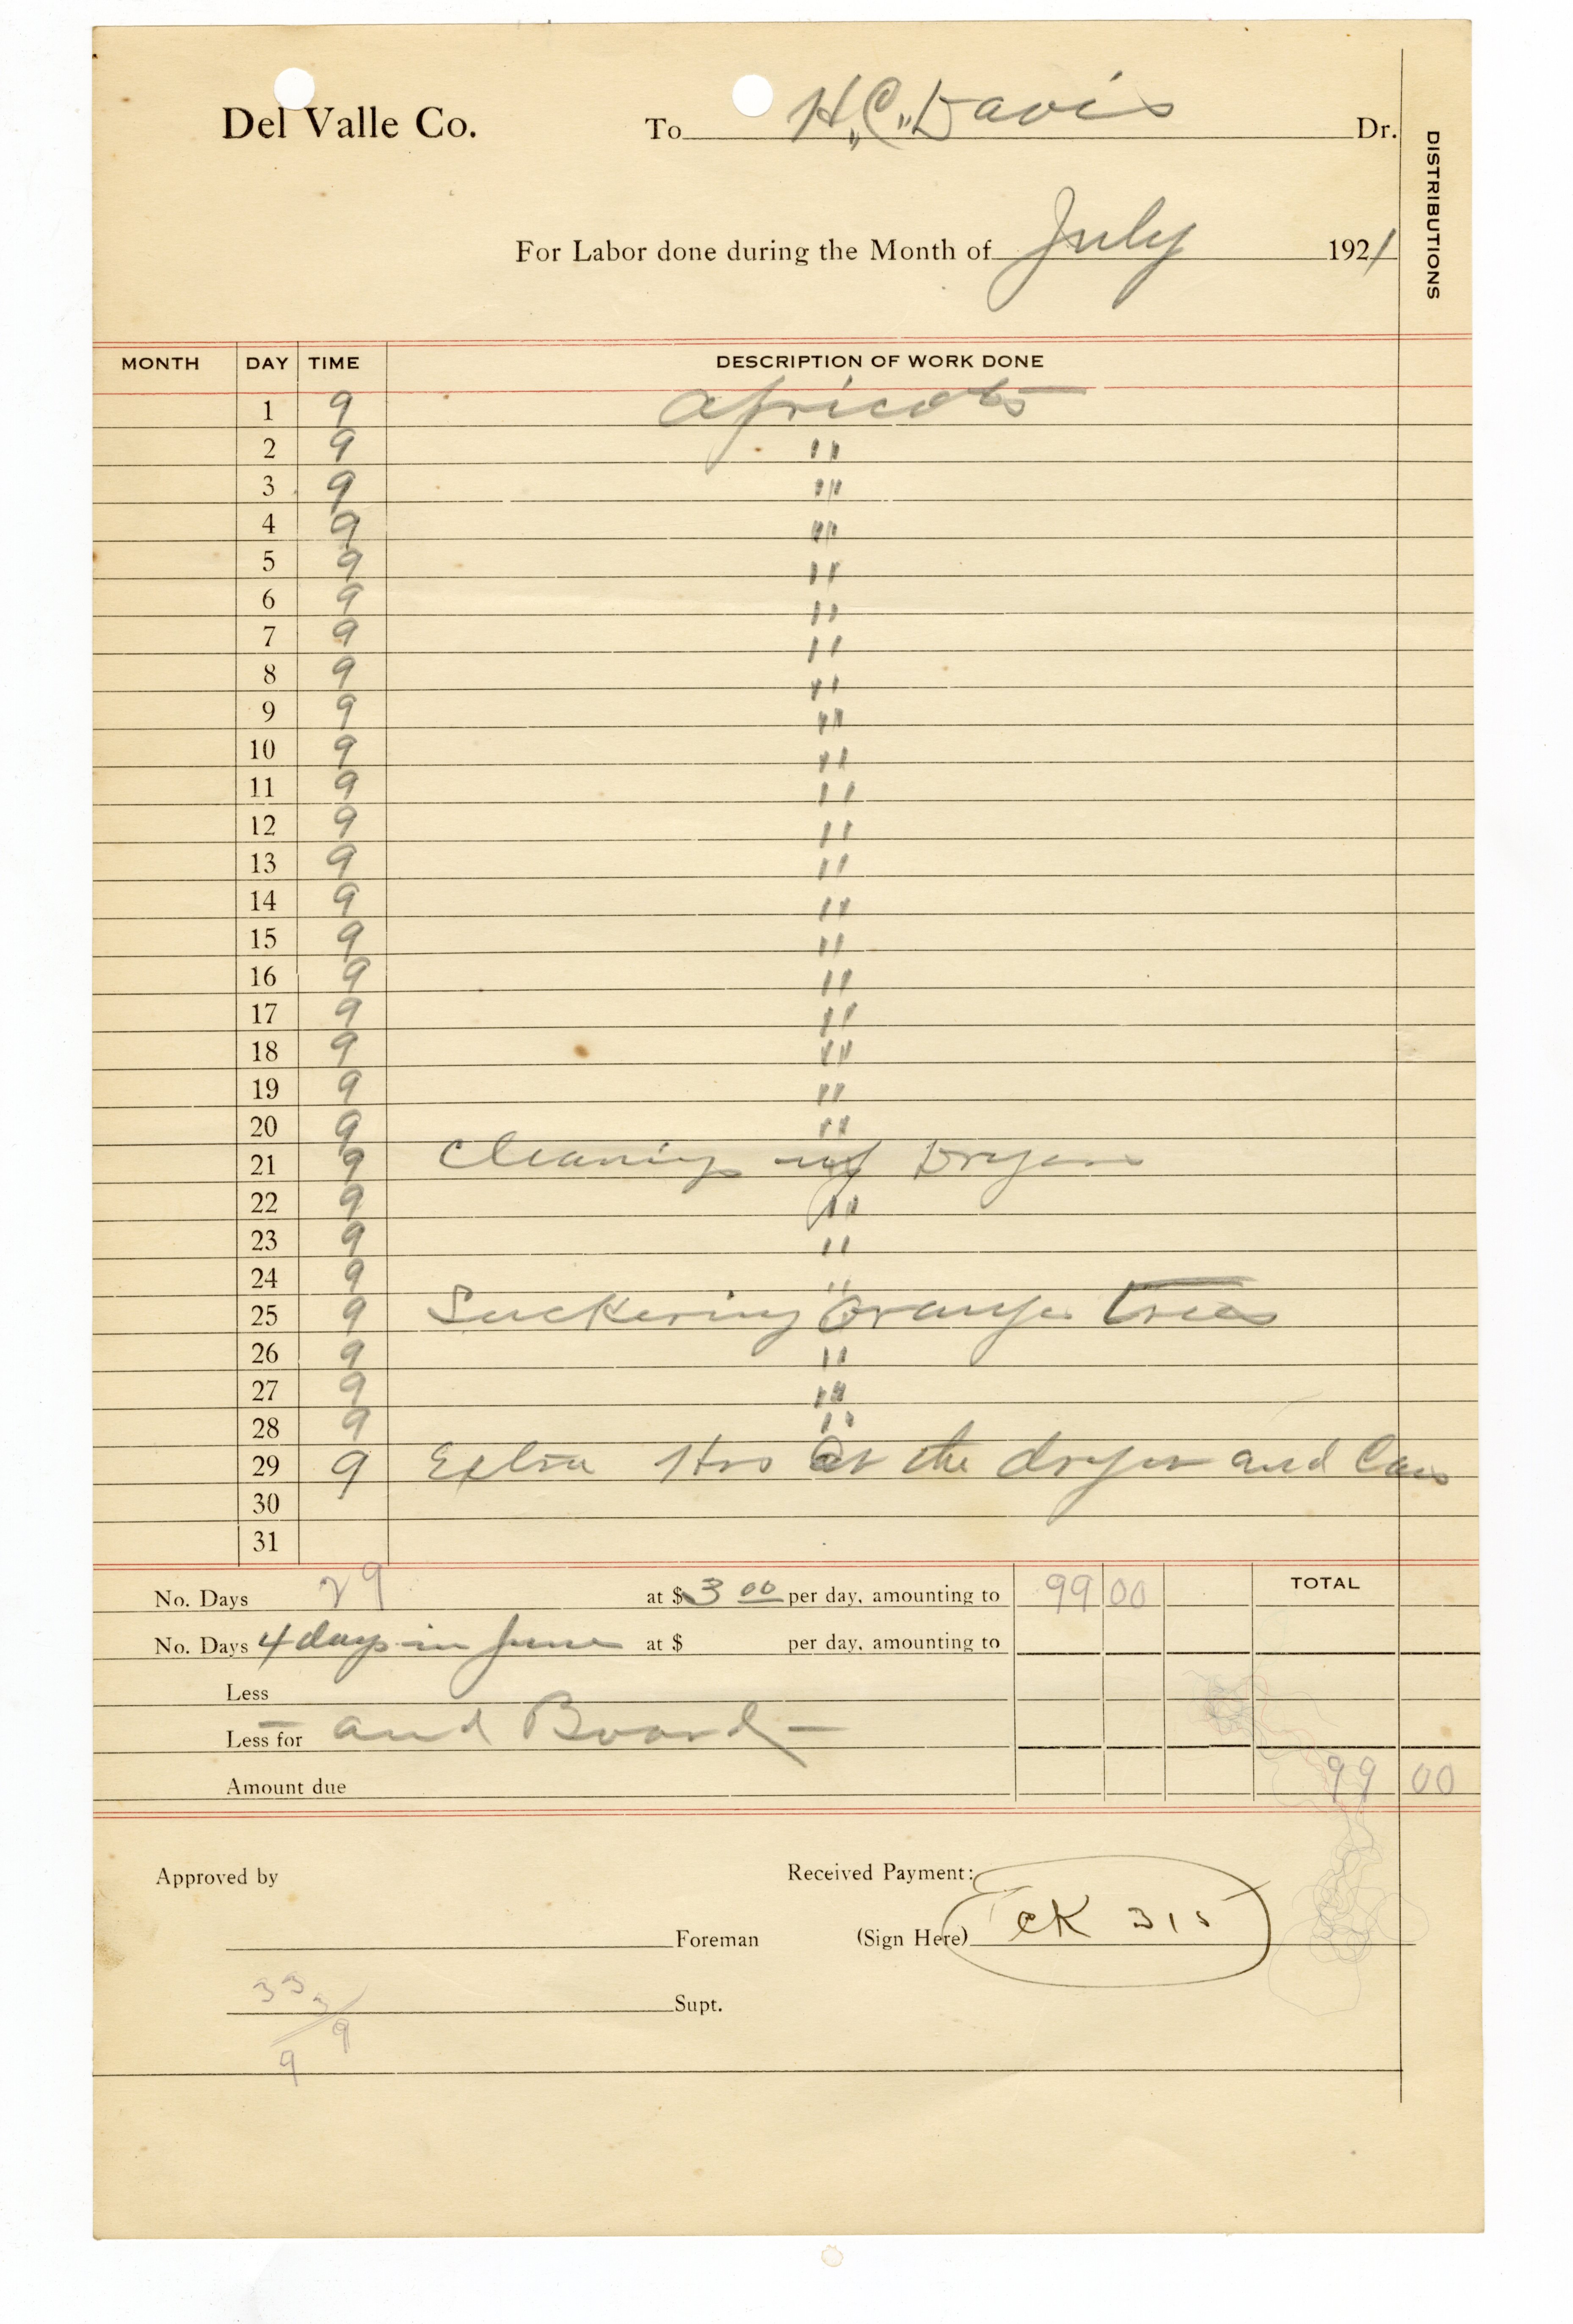 Del Valle Co. To H.C. Davis Dr.
DISTRIBUTIONS
For Labor done during the Month of July 1921
MONTH DAY TIME DESCRIPTION OF WORK DONE
1 9 Apricots
2 9 "
3 9 "
4 9 "
5 9 "
6 9 "
7 9 "
8 9 "
9 9 "
10 9 "
11 9 "
12 9 "
13 9 "
14 9 "
15 9 "
16 9 "
17 9 "
18 9 "
19 9 "
20 9 "
21 9 Cleaning up Dryer
22 9 "
23 9 "
24 9 "
25 9 Suckering Orange trees
26 9 "
27 9 "
28 9 "
29 9 Extra Hrs at the dryer and
30
31
No. Days 29 at $ 3 00 per day, amounting to 99 00 TOTAL
No. Days 4 days in June at $ per day, amounting to
Less
Less for — and Board —
Amount due 99 00
Approved by Received Payment:
Foreman (Sign Here) CK 315
33
Supt.
9
9